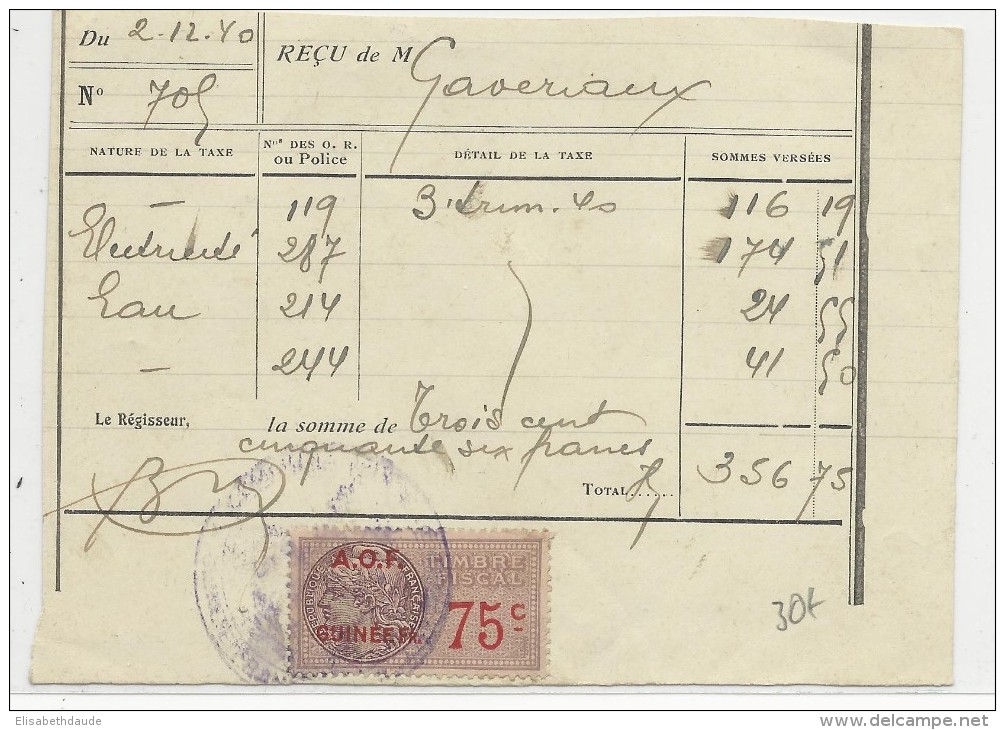 Du 2-12.40
REÇU de M Gaveriaux
No 705
NATURE DE LA TAXE Nos DES O. R. ou Police DÉTAIL DE LA TAXE SOMMES VERSÉES
— 119 3e trim. 40 116 19
Electricité 287 174 51
Eau 214 24 55
— 244 41 50
Le Régisseur, la somme de Trois cent
cinquante six francs 75
TOTAL...... 356 75
A.O.F.
TIMBRE
FISCAL
RÉPUBLIQUE FRANÇAISE
GUINÉE Fr.
75c
30f
Elisabethdaude
www.delcampe.net